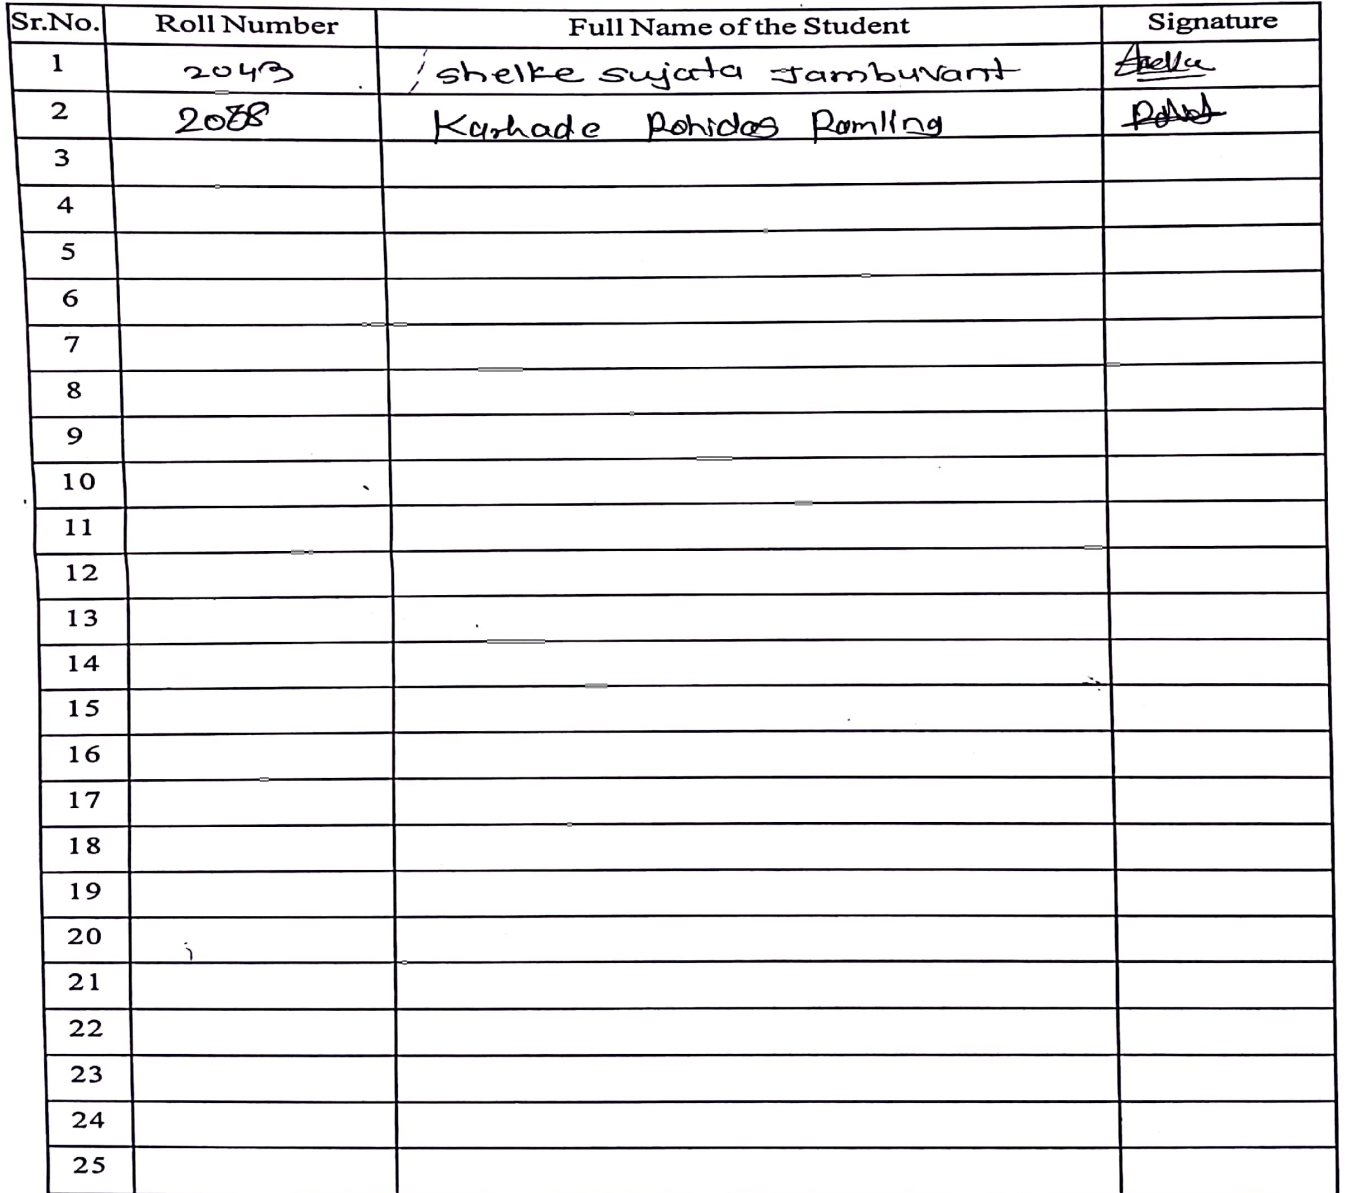 Sr.No. Roll Number Full Name of the Student Signature
1 2043 shelke sujata Jambuvant
2 Karhade Rohidas Ramling
3
4
5
6
7
8
9
10
11
12
13
14
15
16
17
18
19
20
21
22
23
24
25